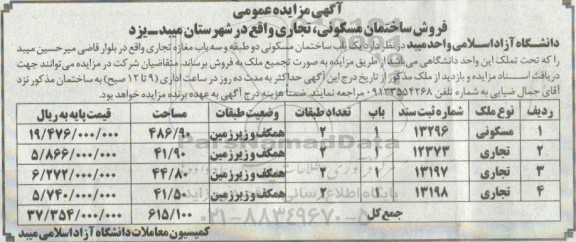 آگهی مزایده عمومی
فروش ساختمان مسکونی، تجاری واقع در شهرستان میبد-یزد
دانشگاه آزاد اسلامی واحد میبد در نظر دارد یک باب ساختمان مسکونی دو طبقه و سه باب مغازه تجاری واقع در بلوار قاضی میر حسین میبد
را که تحت تملک این واحد دانشگاهی می‌باشد از طریق مزایده به صورت تجمیع ملک به فروش برساند. متقاضیان شرکت در مزایده می‌توانند جهت
دریافت اسناد مزایده و بازدید از ملک مذکور از تاریخ درج این آگهی حداکثر به مدت ده روز در ساعت اداری (۹ تا ۱۲ صبح) به ساختمان مذکور نزد
آقای جمال ضیایی به شماره تلفن ۰۹۱۳۳۵۵۴۲۶۸ مراجعه نمایند. ضمناً هزینه درج آگهی به عهده برنده مزایده خواهد بود.
ردیف نوع ملک شماره ثبت سند باب تعداد طبقات وضعیت طبقات مساحت قیمت پایه به ریال
۱ مسکونی ۱۳۲۹۶ ۱ ۲ همکف و زیرزمین ۴۸۶/۹۰ ۱۹/۴۷۶/۰۰۰/۰۰۰
۲ تجاری ۱۲۳۷۳ ۱ ۲ همکف و زیرزمین ۴۱/۹۰ ۵/۸۶۶/۰۰۰/۰۰۰
۳ تجاری ۱۳۱۹۷ ۱ ۲ همکف و زیرزمین ۴۴/۸۰ ۶/۲۷۲/۰۰۰/۰۰۰
۴ تجاری ۱۳۱۹۸ ۱ ۲ همکف و زیرزمین ۴۱/۵۰ ۵/۷۴۰/۰۰۰/۰۰۰
جمع کل ۶۱۵/۱۰۰ ۳۷/۳۵۴/۰۰۰/۰۰۰
کمیسیون معاملات دانشگاه آزاد اسلامی میبد
ParsNamadData
۰۲۱-۸۸۳۴۹۶۷۰-۵